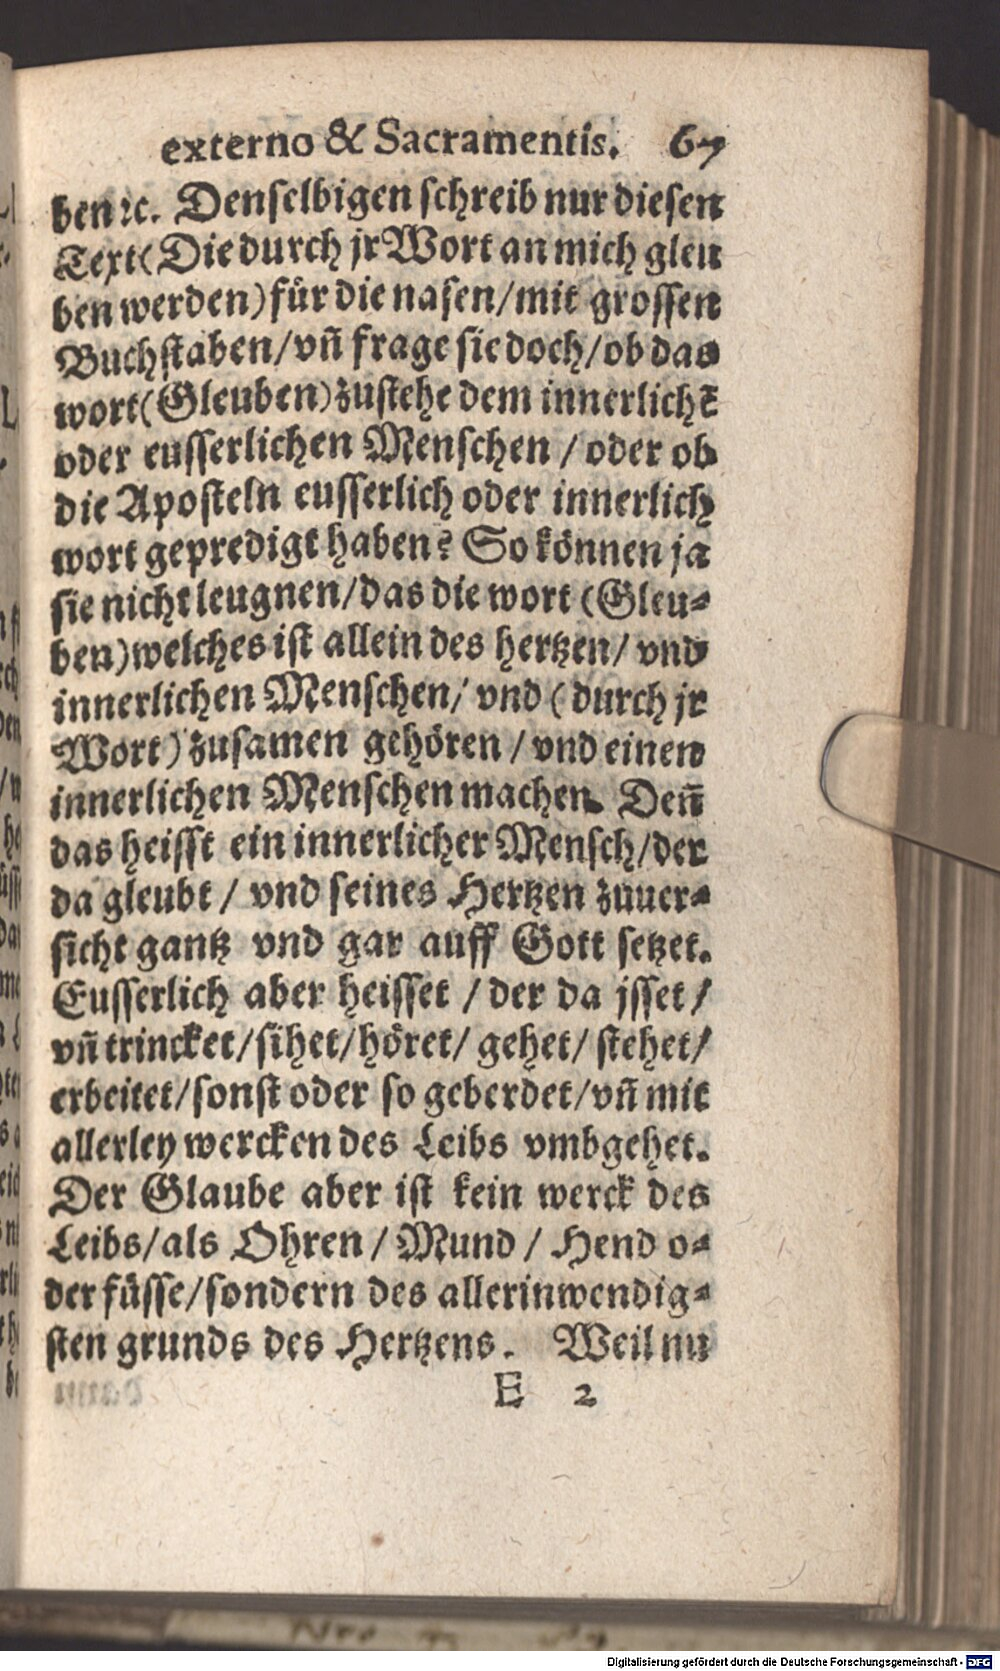 externo & Sacramentis. 67
ben ꝛc. Denselbigen schreib nur diesen
Text (Die durch jr Wort an mich gleu
ben werden) für die nasen/mit grossen
Buchstaben/vñ frage sie doch/ob das
wort (Gleuben) zustehe dem innerlichẽ
oder eusserlichen Menschen / oder ob
die Aposteln eusserlich oder innerlich
wort gepredigt haben? So können ja
sie nicht leugnen/das die wort (Gleu-
ben) welches ist allein des hertzen/ vnd
innerlichen Menschen/ vnd (durch jr
Wort) zusamen gehören / vnd einen
innerlichen Menschen machen. Deñ
das heisst ein innerlicher Mensch/der
da gleubt / vnd seines Hertzen zuuer-
sicht gantz vnd gar auff Gott setzet.
Eusserlich aber heisset / der da jsset/
vñ trincket/sihet/höret/ gehet/ stehet/
erbeitet/sonst oder so geberdet/vñ mit
allerley wercken des Leibs vmbgehet.
Der Glaube aber ist kein werck des
Leibs/als Ohren / Mund / Hend o-
der füsse/sondern des allerinwendig-
sten grunds des Hertzens. Weil nu
E 2
Digitalisierung gefördert durch die Deutsche Forschungsgemeinschaft - DFG